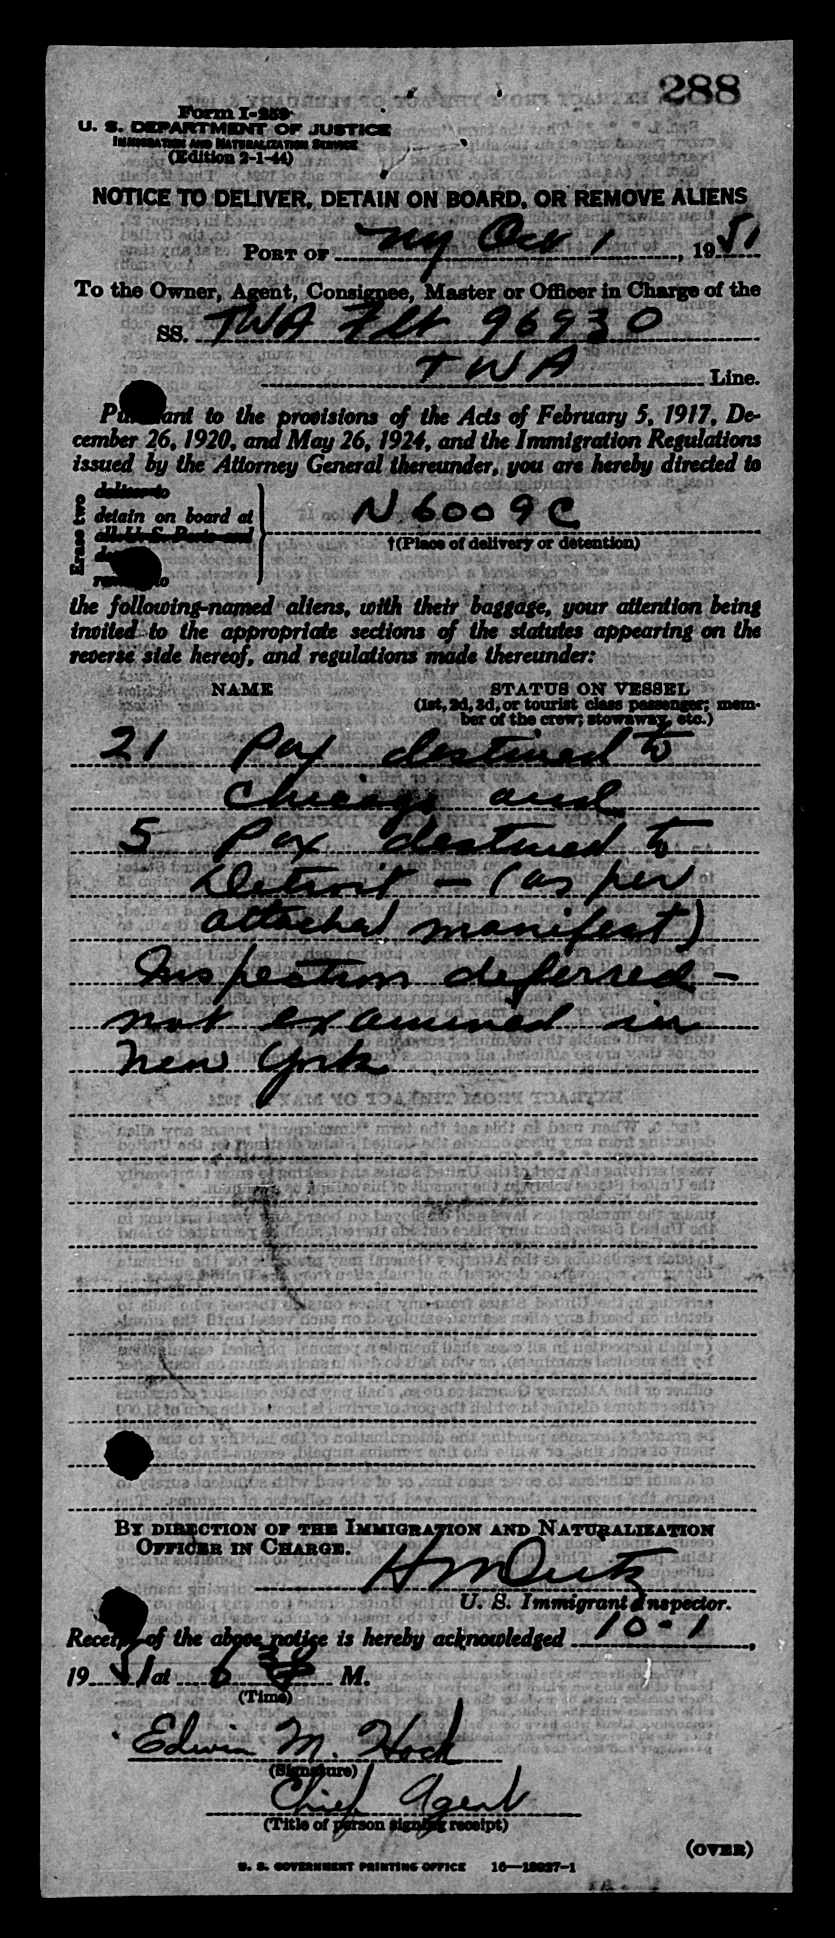 288
Form I-259
U. S. DEPARTMENT OF JUSTICE
IMMIGRATION AND NATURALIZATION SERVICE
(Edition 2-1-44)
NOTICE TO DELIVER, DETAIN ON BOARD, OR REMOVE ALIENS
PORT OF NY Oct 1, 1951
To the Owner, Agent, Consignee, Master or Officer in Charge of the
SS. TWA Flt 96930
TWA Line.
Pursuant to the provisions of the Acts of February 5, 1917, De-
cember 26, 1920, and May 26, 1924, and the Immigration Regulations
issued by the Attorney General thereunder, you are hereby directed to
Erase two
deliver to
detain on board at
all U. S. Ports and
remove to
N6009C
†(Place of delivery or detention)
the following-named aliens, with their baggage, your attention being
invited to the appropriate sections of the statutes appearing on the
reverse side hereof, and regulations made thereunder:
NAME STATUS ON VESSEL
(1st, 2d, 3d, or tourist class passenger; mem-
ber of the crew; stowaway, etc.)
21 Pax destined to
Chicago and
5 Pax destined to
Detroit - (as per
attached manifest)
Inspection deferred -
not examined in
New York
BY DIRECTION OF THE IMMIGRATION AND NATURALIZATION
OFFICER IN CHARGE.
U. S. Immigrant Inspector.
Receipt of the above notice is hereby acknowledged 10-1,
1951 at 6 M.
(Time)
Edwin M. Hock
(Signature)
Chief Agent
(Title of person signing receipt)
(OVER)
U. S. GOVERNMENT PRINTING OFFICE 16—18827-1